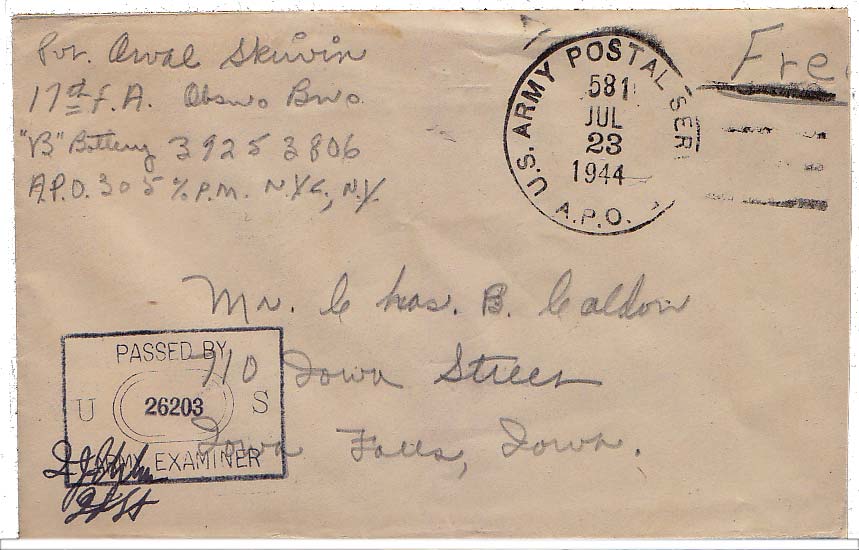 Pvt. Orval Skirvin
17th F.A. Obsvo Bno
"B" Battery 39253806
A.P.O. 305 % P.M. N.Y.C., N.Y.
Free
U.S. ARMY POSTAL SER
581
JUL
23
1944
A.P.O.
Mr. Chas. B. Caldon
710 Iowa Street
Iowa Falls, Iowa.
PASSED BY
U 26203 S
ARMY EXAMINER